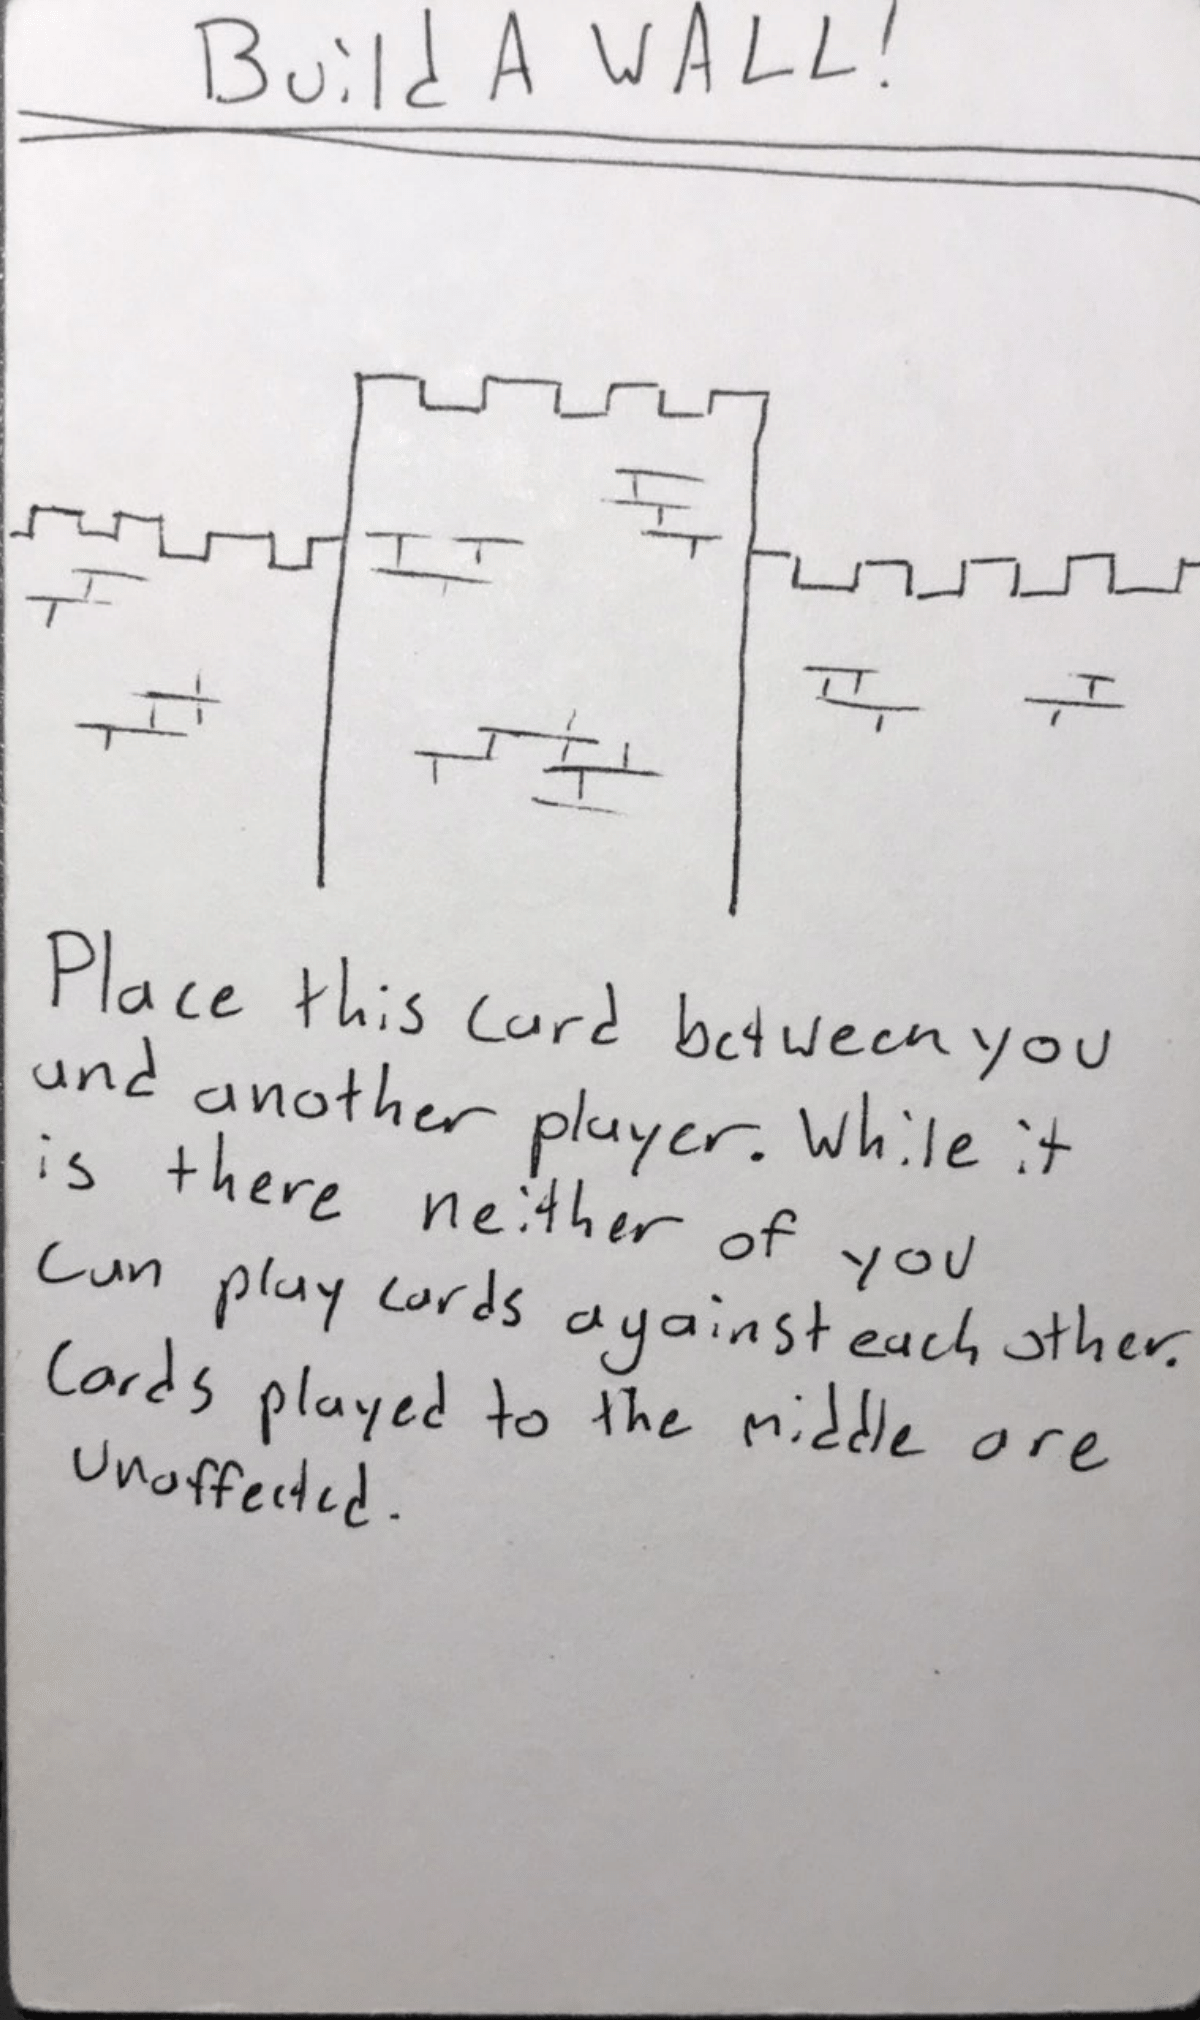 Build A WALL!
Place this card between you
and another player. While it
is there neither of you
can play cards against each other.
Cards played to the middle are
unaffected.